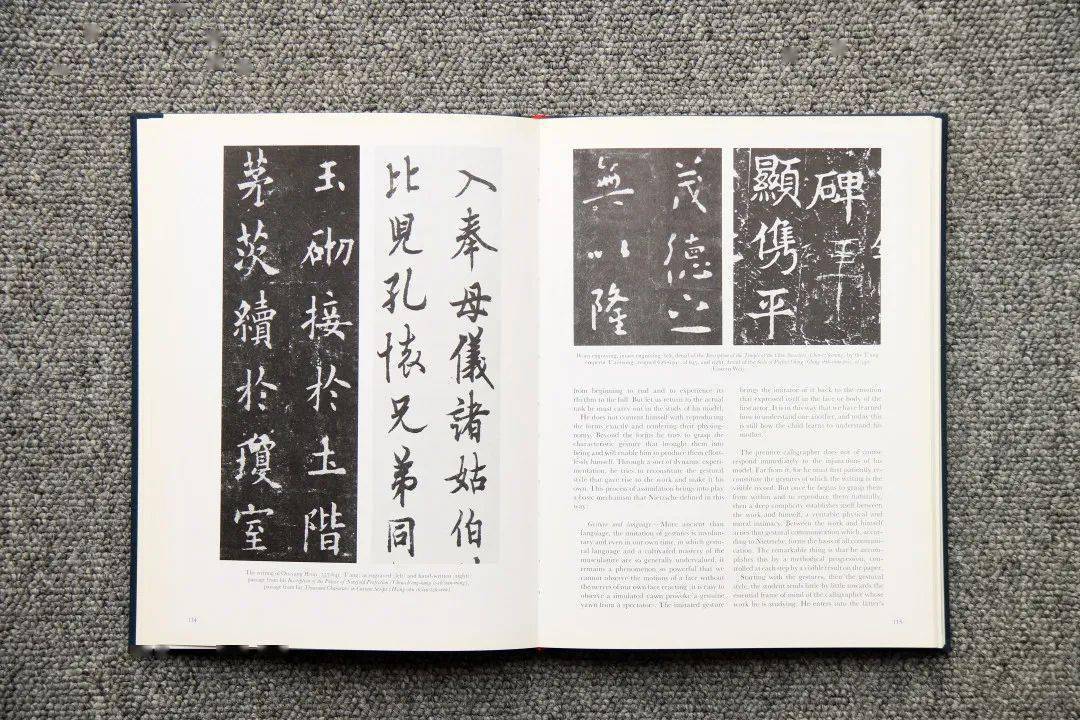 玉砌接於土階
茅茨續於瓊室
入奉母儀諸姑伯
比兒孔懷兄弟同
The writing of Ouyang Hsun
T'ang: as engraved (left) and hand-written (right):
passage from his Inscription of the Palace of
passage from his Thousand Characters in Current Script
114
茂德之
無以隆
碑
顯儁平
left, detail of the Inscription of the Temple of the by the T'ang
emperor and right, detail of the
Eastern Wei).
from beginning to end and to experience its
rhythm to the full. But let us return to the actual
task he must carry out in the study of his model.
He does not content himself with reproducing
the forms exactly and rendering their physiog-
nomy. Beyond the forms he tries to grasp the
characteristic gesture that brought them into
being and will enable him to produce them effort-
lessly himself. Through a sort of dynamic experi-
mentation, he tries to reconstitute the gestural
style that gave rise to the work and make it his
own. This process of assimilation brings into play
a basic mechanism that Nietzsche defined in this
way:
Gesture and language.—More ancient than
language, the imitation of gestures is involun-
tary and even in our own time, in which gestu-
ral language and a cultivated mastery of the
musculature are so generally undervalued, it
remains a phenomenon so powerful that we
cannot observe the motions of a face without
the nerves of our own face reacting: it is easy to
observe a simulated yawn provoke a genuine
yawn from a spectator. The imitated gesture
brings the imitator of it back to the emotion
that expressed itself in the face or body of the
first actor. It is in this way that we have learned
how to understand one another, and today this
is still how the child learns to understand his
mother.
The prentice calligrapher does not of course
respond immediately to the injunctions of his
model. Far from it, for he must first patiently re-
constitute the gestures of which the writing is the
visible record. But once he begins to grasp them
from within and to reproduce them naturally,
then a deep complicity establishes itself between
the work and himself, a veritable physical and
moral intimacy. Between the work and himself
arises that gestural communication which, accord-
ing to Nietzsche, forms the basis of all communi-
cation. The remarkable thing is that he accom-
plishes this by a methodical progression, con-
trolled at each step by a visible result on the paper.
Starting with the gestures, then the gestural
style, the student tends little by little towards the
essential frame of mind of the calligrapher whose
work he is studying. He enters into the latter's
115